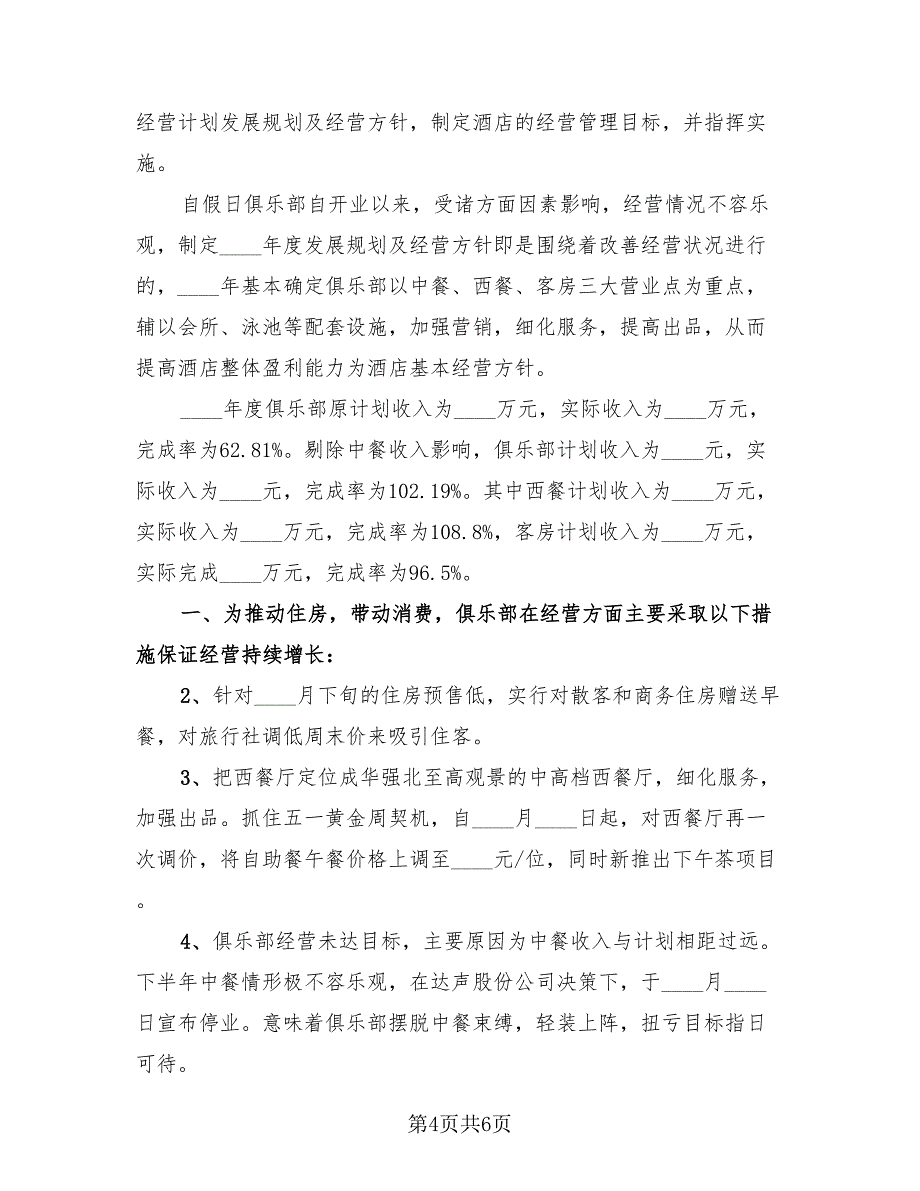 经营计划发展规划及经营方针，制定酒店的经营管理目标，并指挥实
施。
自假日俱乐部自开业以来，受诸方面因素影响，经营情况不容乐
观，制定____年度发展规划及经营方针即是围绕着改善经营状况进行
的，____年基本确定俱乐部以中餐、西餐、客房三大营业点为重点，
辅以会所、泳池等配套设施，加强营销，细化服务，提高出品，从而
提高酒店整体盈利能力为酒店基本经营方针。
____年度俱乐部原计划收入为____万元，实际收入为____万元，
完成率为62.81%。剔除中餐收入影响，俱乐部计划收入为____元，实
际收入为____元，完成率为102.19%。其中西餐计划收入为____万元，
实际收入为____万元，完成率为108.8%，客房计划收入为____万元，
实际完成____万元，完成率为96.5%。
一、为推动住房，带动消费，俱乐部在经营方面主要采取以下措
施保证经营持续增长：
2、针对____月下旬的住房预售低，实行对散客和商务住房赠送早
餐，对旅行社调低周末价来吸引住客。
3、把西餐厅定位成华强北至高观景的中高档西餐厅，细化服务，
加强出品。抓住五一黄金周契机，自____月____日起，对西餐厅再一
次调价，将自助餐午餐价格上调至____元/位，同时新推出下午茶项目
。
4、俱乐部经营未达目标，主要原因为中餐收入与计划相距过远。
下半年中餐情形极不容乐观，在达声股份公司决策下，于____月____
日宣布停业。意味着俱乐部摆脱中餐束缚，轻装上阵，扭亏目标指日
可待。
第4页共6页